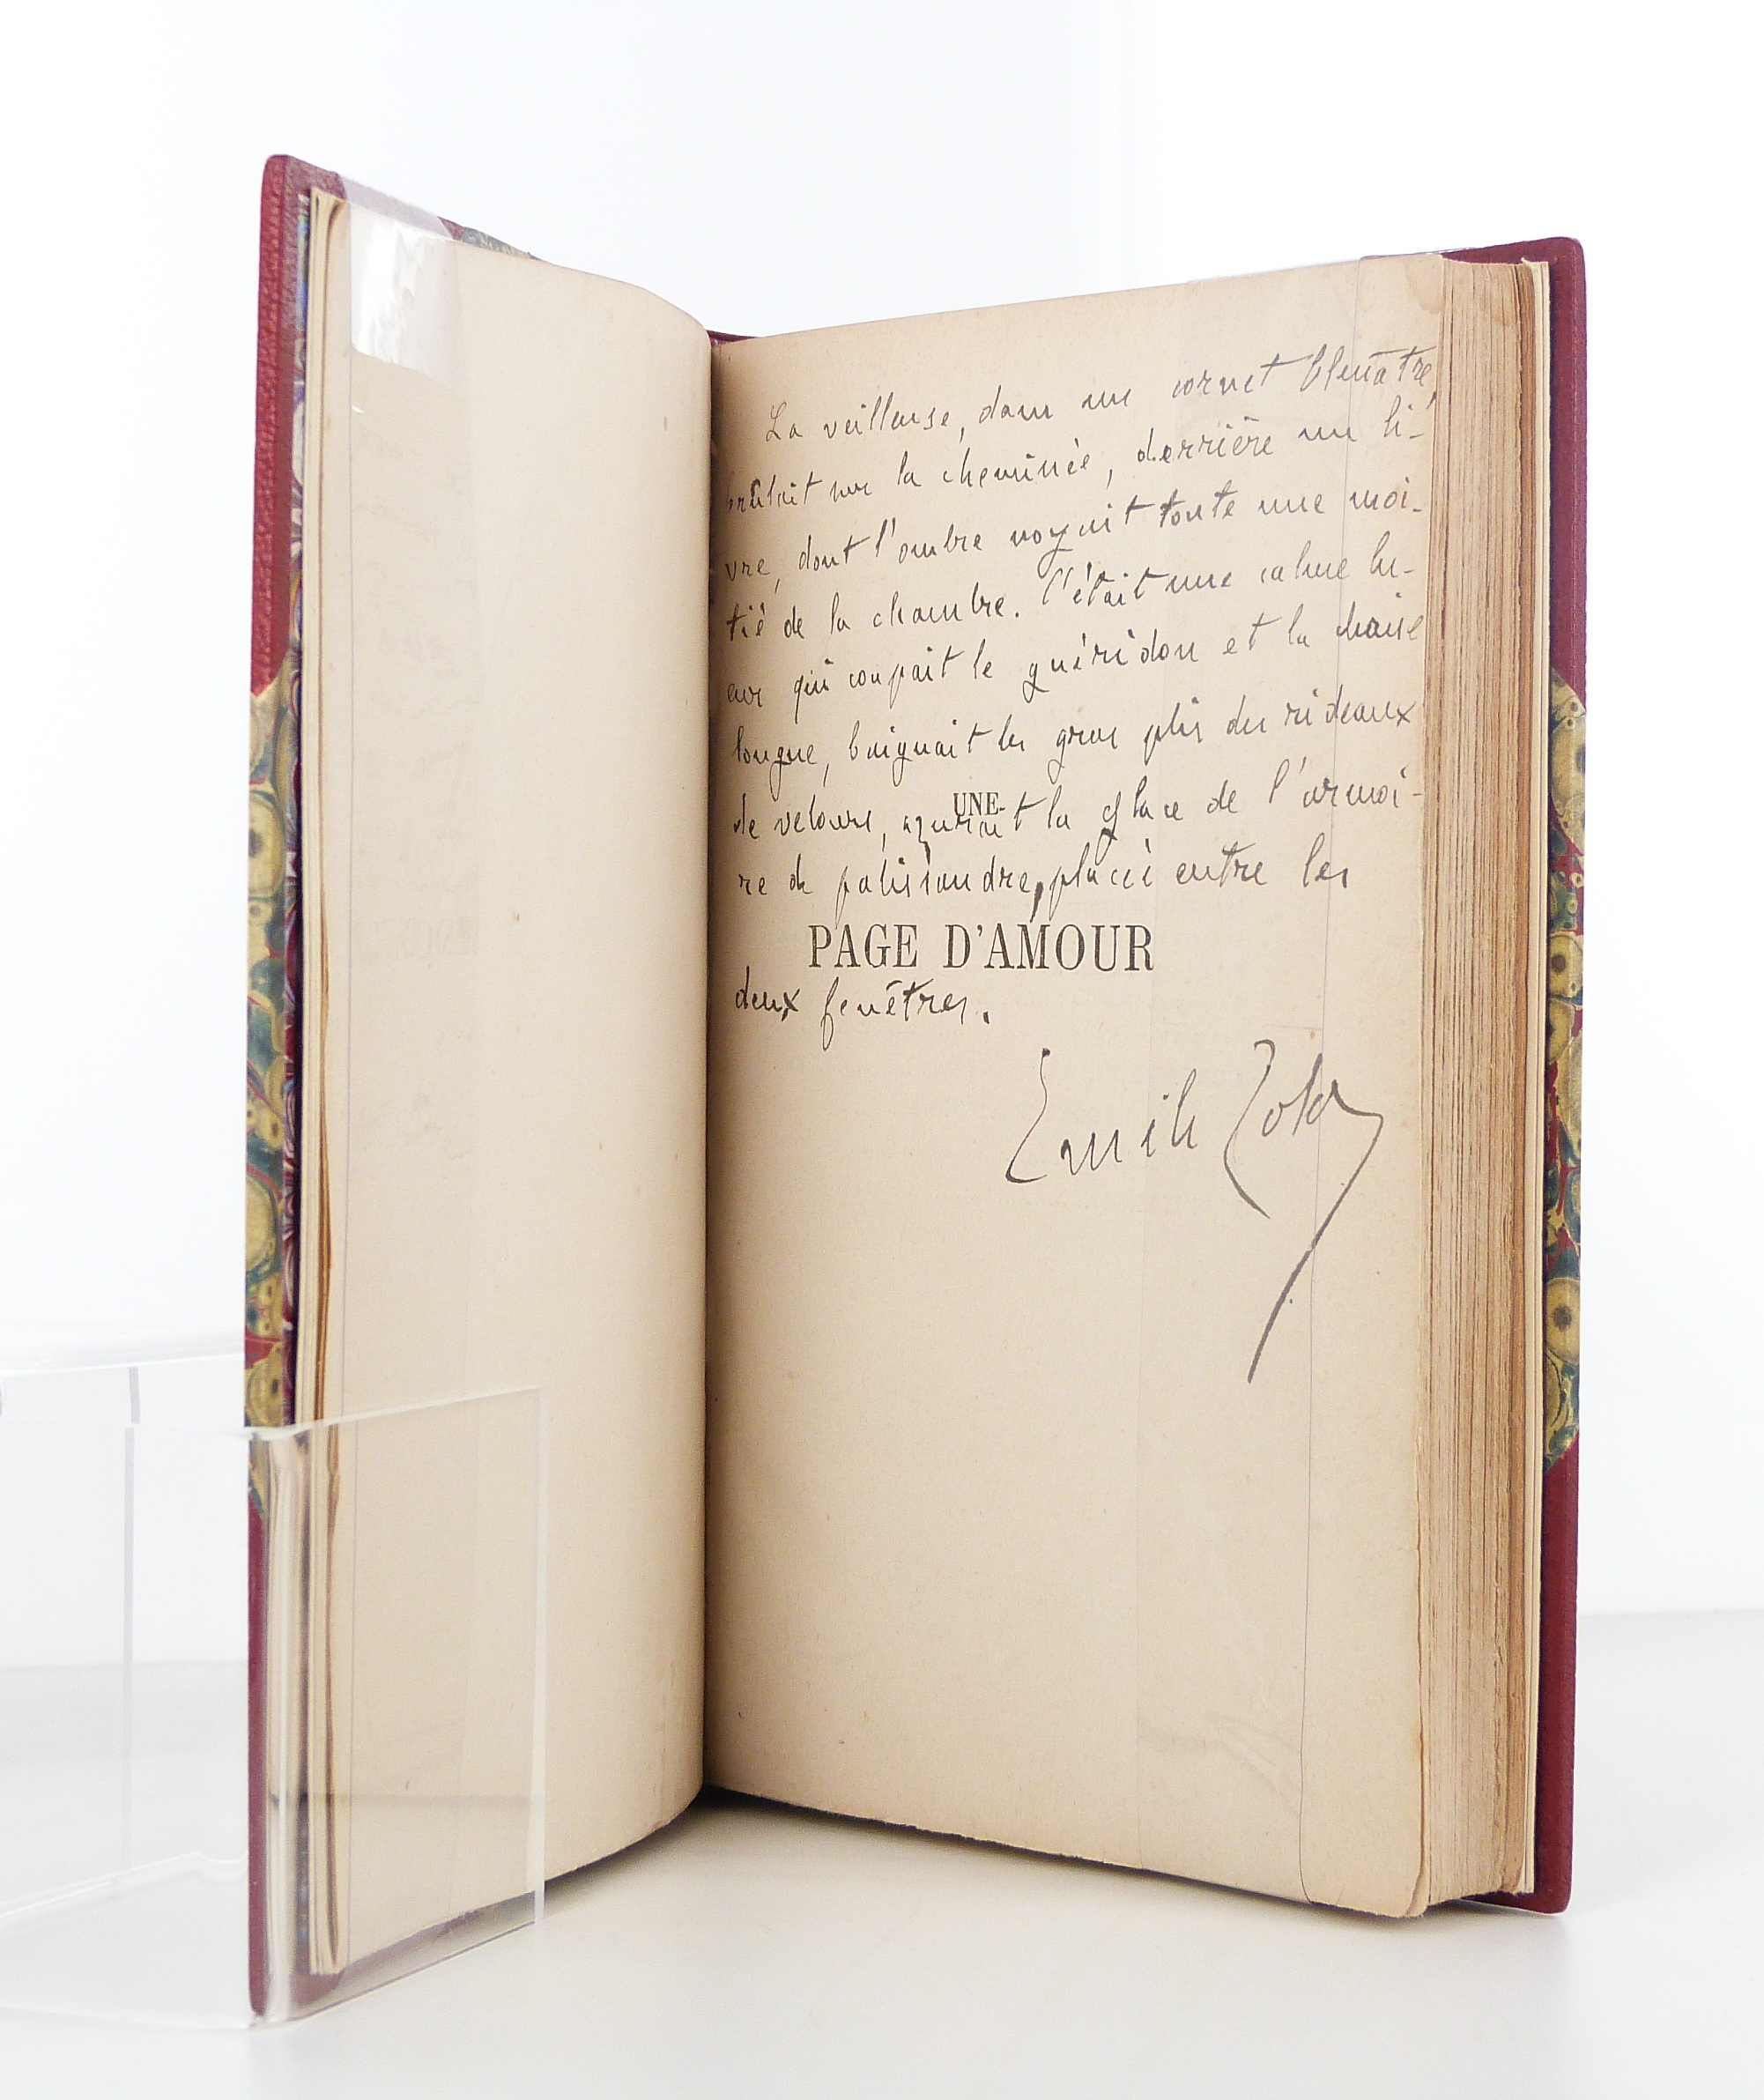 La veilleuse, dans un cornet bleuâtre,
brûlait sur la cheminée, derrière un li-
vre, dont l'ombre noyait toute une moi-
tié de la chambre. C'était une calme lu-
eur qui coupait le guéridon et la chaise
longue, baignait les gros plis des rideaux
de velours, azurait la glace de l'armoi-
UNE
re de palissandre, placée entre les
PAGE D'AMOUR
deux fenêtres.
Emile Zola